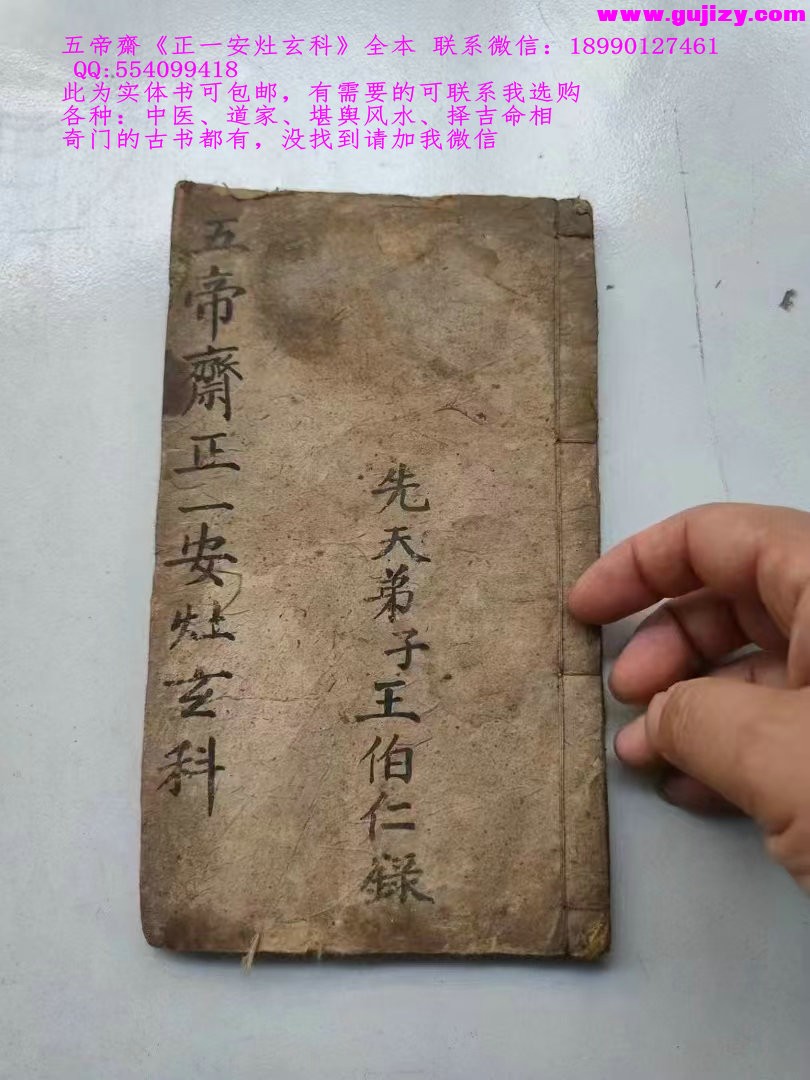 www.gujizy.com
五帝齋《正一安灶玄科》全本 联系微信：18990127461
QQ:554099418
此为实体书可包邮，有需要的可联系我选购
各种：中医、道家、堪舆风水、择吉命相
奇门的古书都有，没找到请加我微信
五帝齋正一安灶玄科
先天弟子王伯仁録